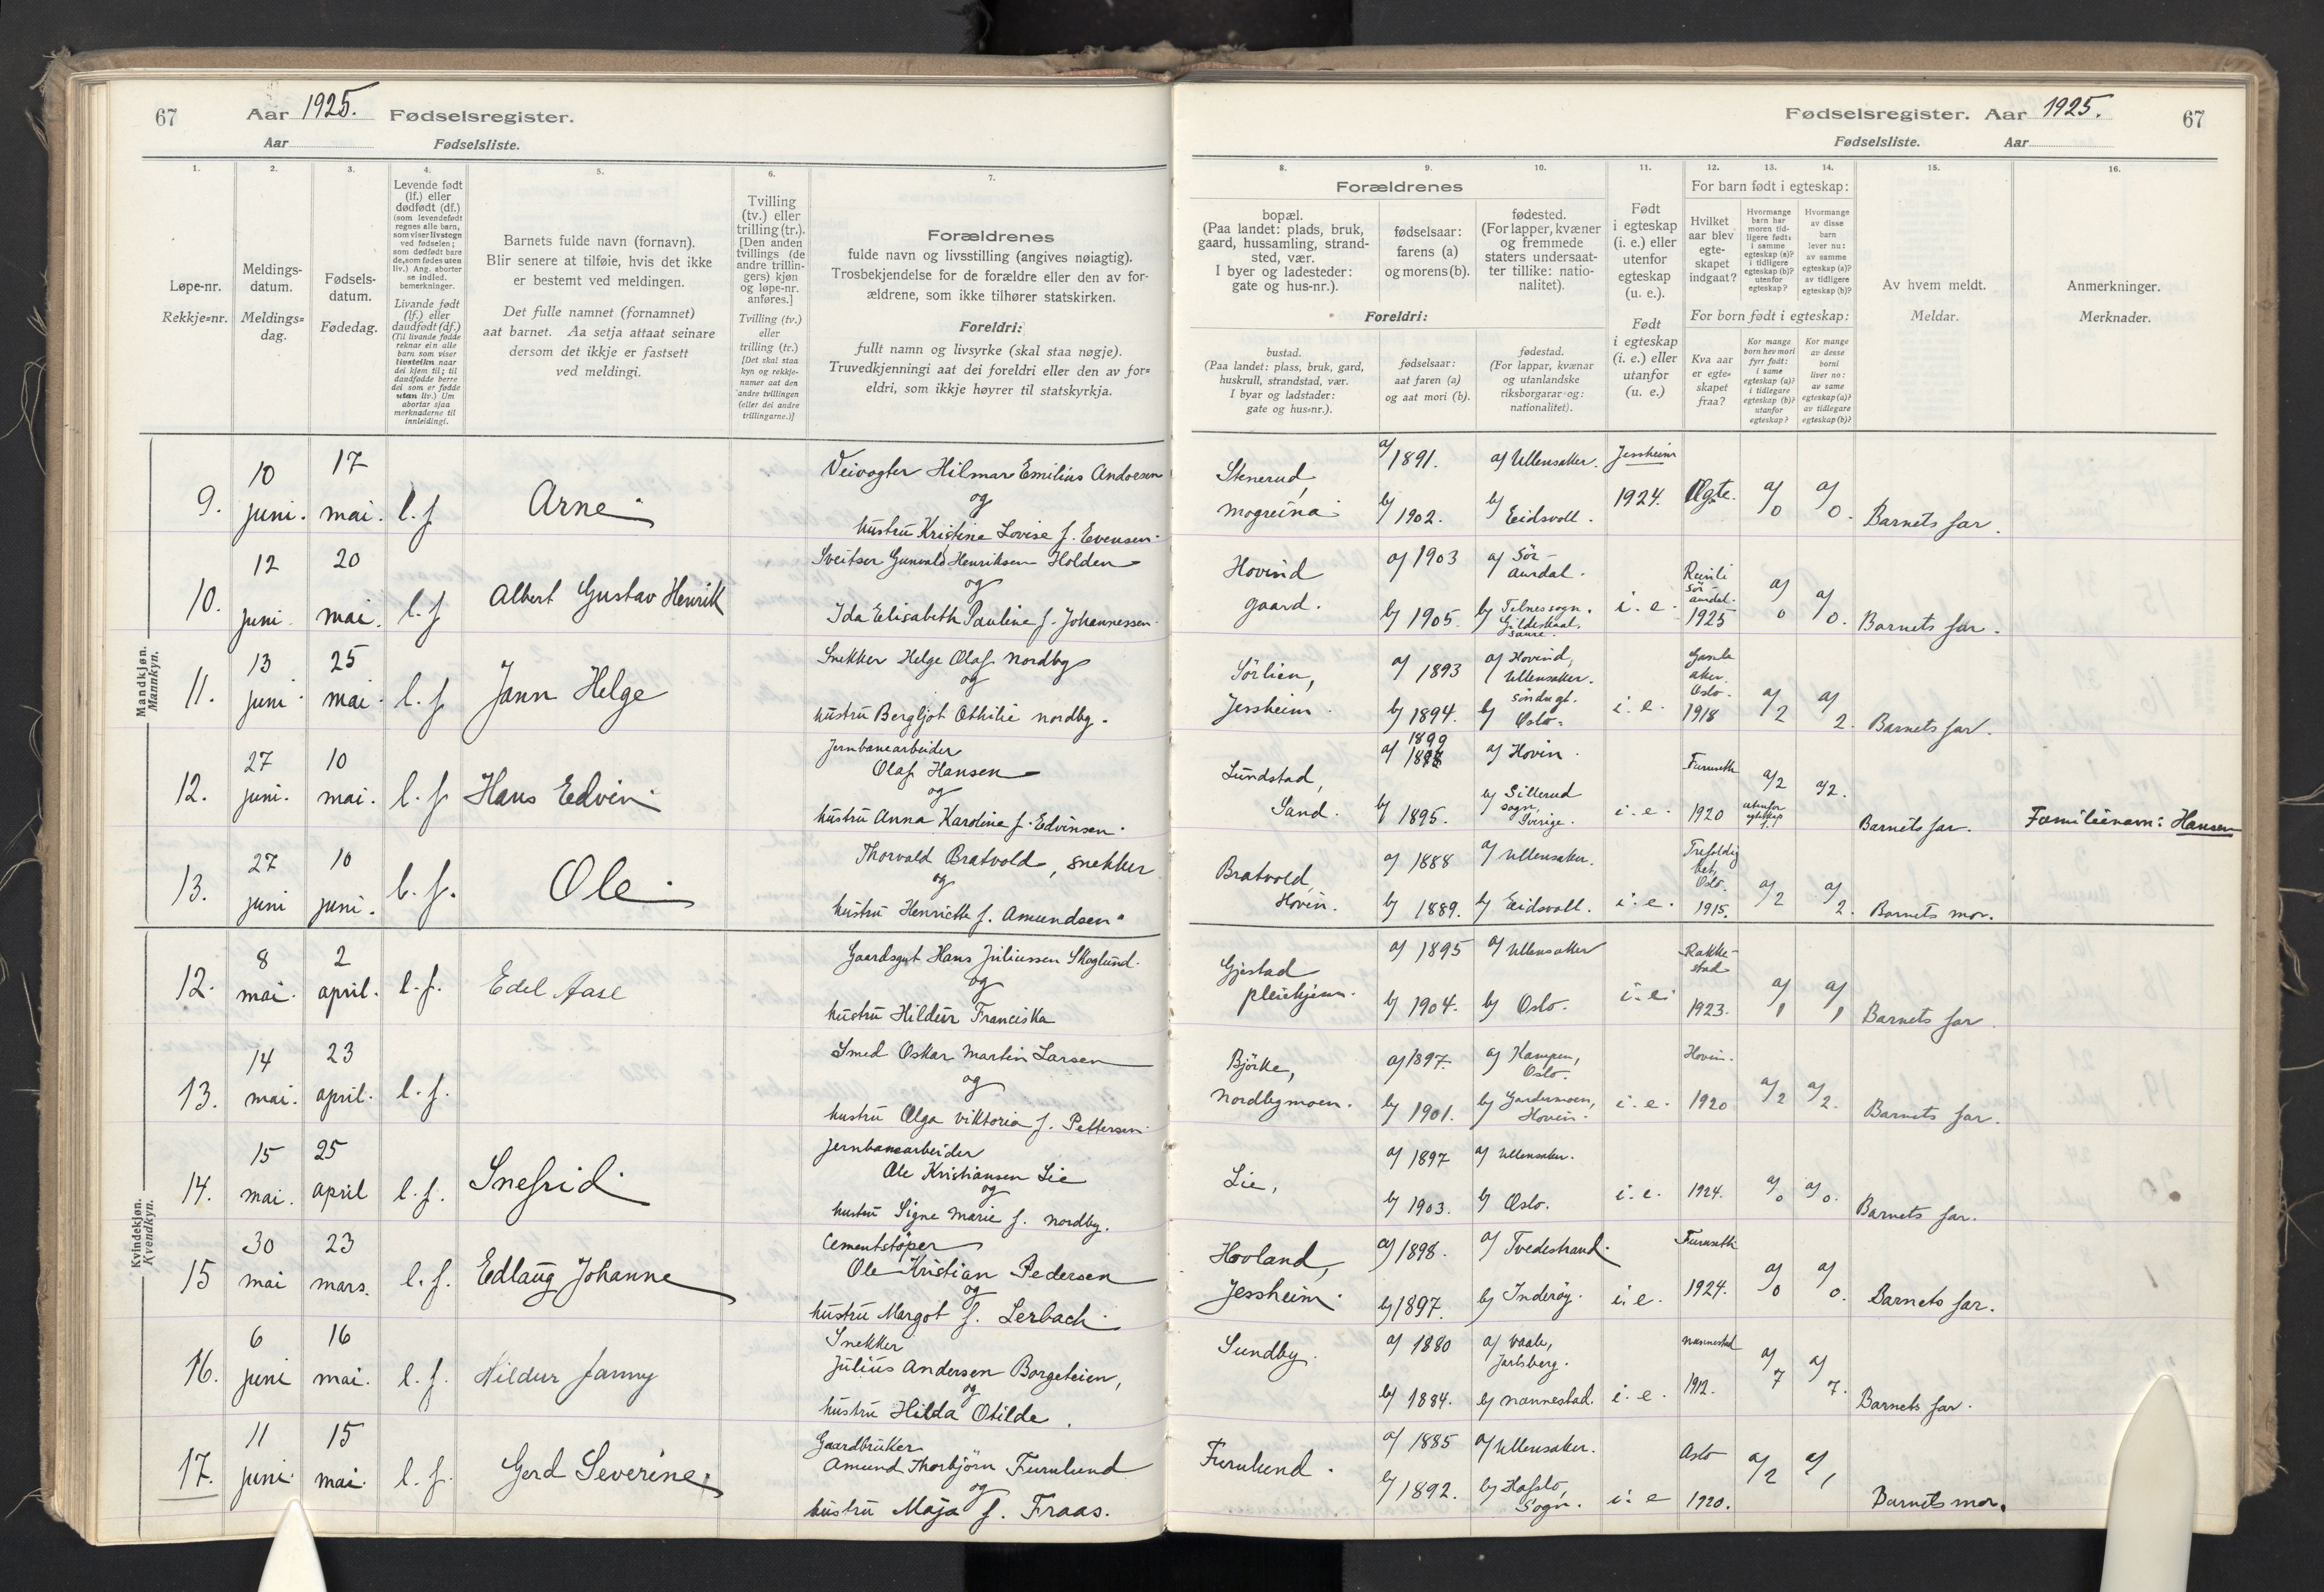 67
Aar 1925. Fødselsregister.
Aar Fødselsliste.
Fødselsregister. Aar 1925.
67
Fødselsliste. Aar
1. 2. 3. 4. 5. 6. 7.
Løpe-nr.
Rekkje=nr.
Meldings-
datum.
Meldings=
dag.
Fødsels-
datum.
Fødedag.
Levende født
(lf.) eller
dødfødt (df.)
(som levendefødt
regnes alle barn,
som viser livstegn
ved fødselen;
som dødfødt bare
de, som fødes uten
liv.) Ang. aborter
se indled.
bemerkninger.
Livande født
(lf.) eller
daudfødt (df.)
(Til livande fødde
reknar ein alle
barn som viser
livsteikn naar
dei kjem til; til
daudfødde berre
dei som er fødde
utan liv.) Um
abortar sjaa
merknaderne til
innleidingi.
Barnets fulde navn (fornavn).
Blir senere at tilføie, hvis det ikke
er bestemt ved meldingen.
Det fulle namnet (fornamnet)
aat barnet. Aa setja attaat seinare
dersom det ikkje er fastsett
ved meldingi.
Tvilling
(tv.) eller
trilling (tr.).
[Den anden
tvillings (de
andre trillin-
gers) kjøn
og løpe-nr.
anføres.]
Tvilling (tv.)
eller
trilling (tr.)
[Det skal staa
kyn og rekkje-
numer aat den
andre tvillingen
(eller dei andre
trillingarne.)]
Forældrenes
fulde navn og livsstilling (angives nøiagtig).
Trosbekjendelse for de forældre eller den av for-
ældrene, som ikke tilhører statskirken.
Foreldri:
fullt namn og livsyrke (skal staa nøgje).
Truvedkjenningi aat dei foreldri eller den av for=
eldri, som ikkje høyrer til statskyrkja.
8. 9. 10. 11. 12. 13. 14. 15. 16.
Forældrenes
bopæl.
(Paa landet: plads, bruk,
gaard, hussamling, strand-
sted, vær.
I byer og ladesteder:
gate og hus-nr.).
fødselsaar:
farens (a)
og morens (b).
fødested.
(For lapper, kvæner
og fremmede
staters undersaat-
ter tillike: natio-
nalitet).
Foreldri:
bustad.
(Paa landet: plass, bruk, gard,
huskrull, strandstad, vær.
I byar og ladstader:
gate og hus=nr.).
fødselsaar:
aat faren (a)
og aat mori (b).
fødestad.
(For lappar, kvænar
og utanlandske
riksborgarar og:
nationalitet).
Født
i egteskap
(i. e.) eller
utenfor
egteskap
(u. e.).
Født
i egteskap
(i. e.) eller
utanfor
(u. e.)
For barn født i egteskap:
Hvilket
aar blev
egte-
skapet
indgaat?
Hvormange
barn har
moren tid-
ligere født:
i samme
egteskap (a)?
i tidligere
egteskap (b)?
utenfor
egteskap?
Hvormange
av disse
barn
lever nu:
av samme
egteskap (a)?
av tidligere
egteskap (b)?
For born født i egteskap:
Kva aar
er egte-
skapet
fraa?
Kor mange
born hev mori
fyrr født:
i same
egteskap (a)?
i tidlegare
egteskap (b)?
utanfor
egteskap?
Kor mange
av desse
borni
liver no:
av same
egteskap (a)?
av tidlegare
egteskap (b)?
Av hvem meldt.
Meldar.
Anmerkninger.
Merknader.
Mandkjøn.
Mannkyn.
9. 10 juni. 17 mai. l. f. Arne
Veivogter Hilmar Emilius Andresen
og
hustru Kristine Lovise f. Evensen.
Stenerud, mogreina
a/ 1891. a/ Ullensaker. Jessheim
b/ 1902. b/ Eidsvoll. 1924. Ægte. a/0 a/0. Barnets far.
10. 12 juni. 20 mai. l. f. Albert Gustav Henrik
Sveitser Gunvald Henriksen Holden
og
Ida Elisabeth Pauline f. Johannessen.
Hovind gaard.
a/ 1903 a/ Sör-aurdal.
b/ 1905. b/ sogn. Gildeskaal. i. e. Reinli Sör aurdal. 1925 a/0 a/0. Barnets far.
11. 13 juni. 25 mai. l. f. Jann Helge
Snekker Helge Olaf Nordby
og
hustru Bergljot Othilie nordby.
Sörlien, Jessheim.
a/ 1893 a/ Hovind, Ullensaker.
b/ 1894. b/ Oslo. i. e. Gamle aker. Oslo. 1918 a/2 a/2. Barnets far.
12. 27 juni. 10 mai. l. f. Hans Edvin
Jernbanearbeider
Olaf Hansen
og
hustru Anna Karoline f. Edvinsen.
Lundstad, Sand.
1899
a/ a/ Hovin.
b/ 1895. b/ Sillerud sogn, Sverige. i. e. Furuseth 1920 a/2 utenfor egteskap a/2. Barnets far. Familienavn: Hansen
13. 27 juni 10 juni. l. f. Ole
Thorvald Bratvold, snekker
og
hustru Henriette f. Amundsen.
Bratvold, Hovin.
a/ 1888 a/ Ullensaker.
b/ 1889. b/ Eidsvoll. i. e. Trefoldighet, Oslo. 1915. a/2 a/2. Barnets mor.
Kvindekjøn.
Kvendkyn.
12. 8 mai. 2 april. l. f. Edel Aase
Gaardsgut Hans Juliussen Skoglund.
og
hustru Hildur Franciska
Gjestad pleiehjem.
a/ 1895 a/ Ullensaker
b/ 1904. b/ Oslo. i. e. Rakkestad 1923. a/1 a/1 Barnets far.
13. 14 mai. 23 april. l. f.
Smed Oskar Martin Larsen
og
hustru Olga Viktoria f. Pettersen
Björke, Nordbymoen.
a/ 1897. a/ Kampen, Oslo.
b/ 1901. b/ Gardermoen, Hovin. i. e. Hovin. 1920 a/2 a/2. Barnets far.
14. 15 mai. 25 april l. f. Snefrid
Jernbanearbeider
Ole Kristiansen Lie
og
hustru Signe Marie f. Nordby.
Lie,
a/ 1897 a/ Ullensaker.
b/ 1903. b/ Oslo. i. e. 1924. a/0 a/0. Barnets far.
15 30 mai 23 mars. l. f. Edlaug Johanne
Cementstöper
Ole Kristian Pedersen
og
hustru Margot f. Lerbach.
Hovland, Jessheim.
a/ 1898. a/ Tvedestrand.
b/ 1897. b/ Inderöy. i. e. Furuseth 1924. a/0 a/0. Barnets far.
16. 6 juni 16 mai. l. f. Hildur Janny
Snekker
Julius Andersen Borgeteien,
og
hustru Hilda Otilde.
Sundby.
a/ 1880 a/ Vaale, Jarlsberg.
b/ 1884. b/ Nannestad. i. e. Nannestad 1912. a/7 a/7. Barnets far.
17. 11 juni. 15 mai. l. f. Gerd Severine
Gaardbruker
Amund Thorbjörn Furulund
og
hustru Maja f. Fraas.
Furulund.
a/ 1885 a/ Ullensaker.
b/ 1892. b/ Hafslo, Sogn. i. e Oslo 1920. a/2 a/1 Barnets mor.